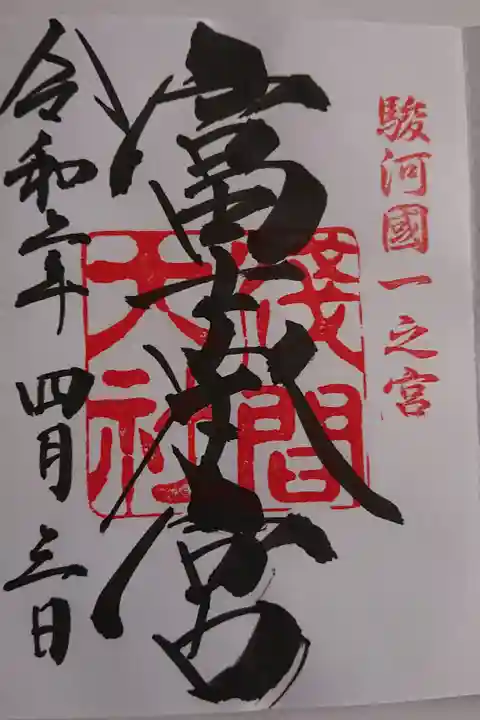 駿河國一之宮
富士本宮
淺間
大社
令和六年 四月 三日